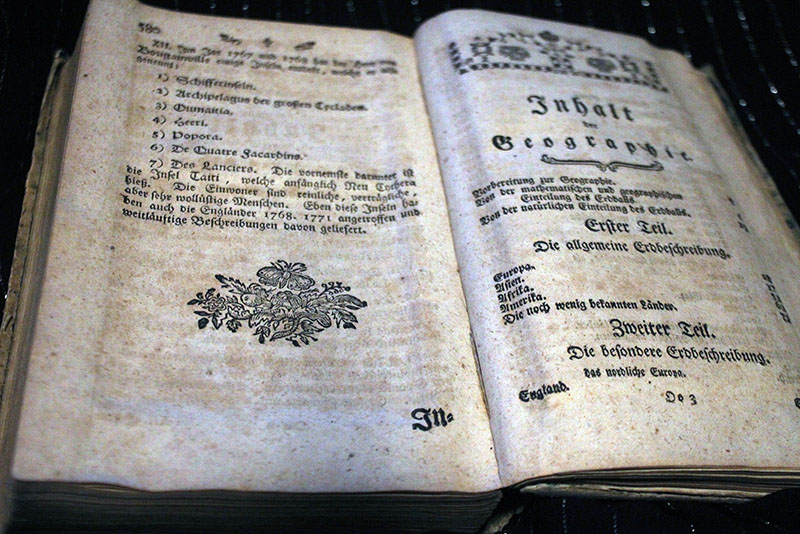 580
XII. Im Jar 1767 und 1769 hat der Herr von
Bougainville einige Inseln entdekt, welche er also
genennt:
1) Schifferinseln.
2) Archipelagus der großen Cycladen.
3) Oumaitia.
4) Heeri.
5) Popora.
6) De Quatre Facardins.
7) Des Lanciers. Die vornemste darunter ist
die Insel Taiti, welche anfänglich Neu Cythera
hieß. Die Einwoner sind reinliche, verträgliche,
aber sehr wollüstige Menschen. Eben diese Inseln ha-
ben auch die Engländer 1768. 1771 angetroffen und
weitläuftige Beschreibungen davon geliefert.
In-
Inhalt
der
Geographie.
Vorbereitung zur Geographie.
Von der mathematischen und geographischen
Einteilung des Erdballs.
Von der natürlichen Einteilung des Erdballs.
Erster Teil.
Die allgemeine Erdbeschreibung.
Europa.
Asien.
Afrika.
Amerika.
Die noch wenig bekannten Länder.
Zweiter Teil.
Die besondere Erdbeschreibung.
das nordliche Europa.
England.
Oo 3